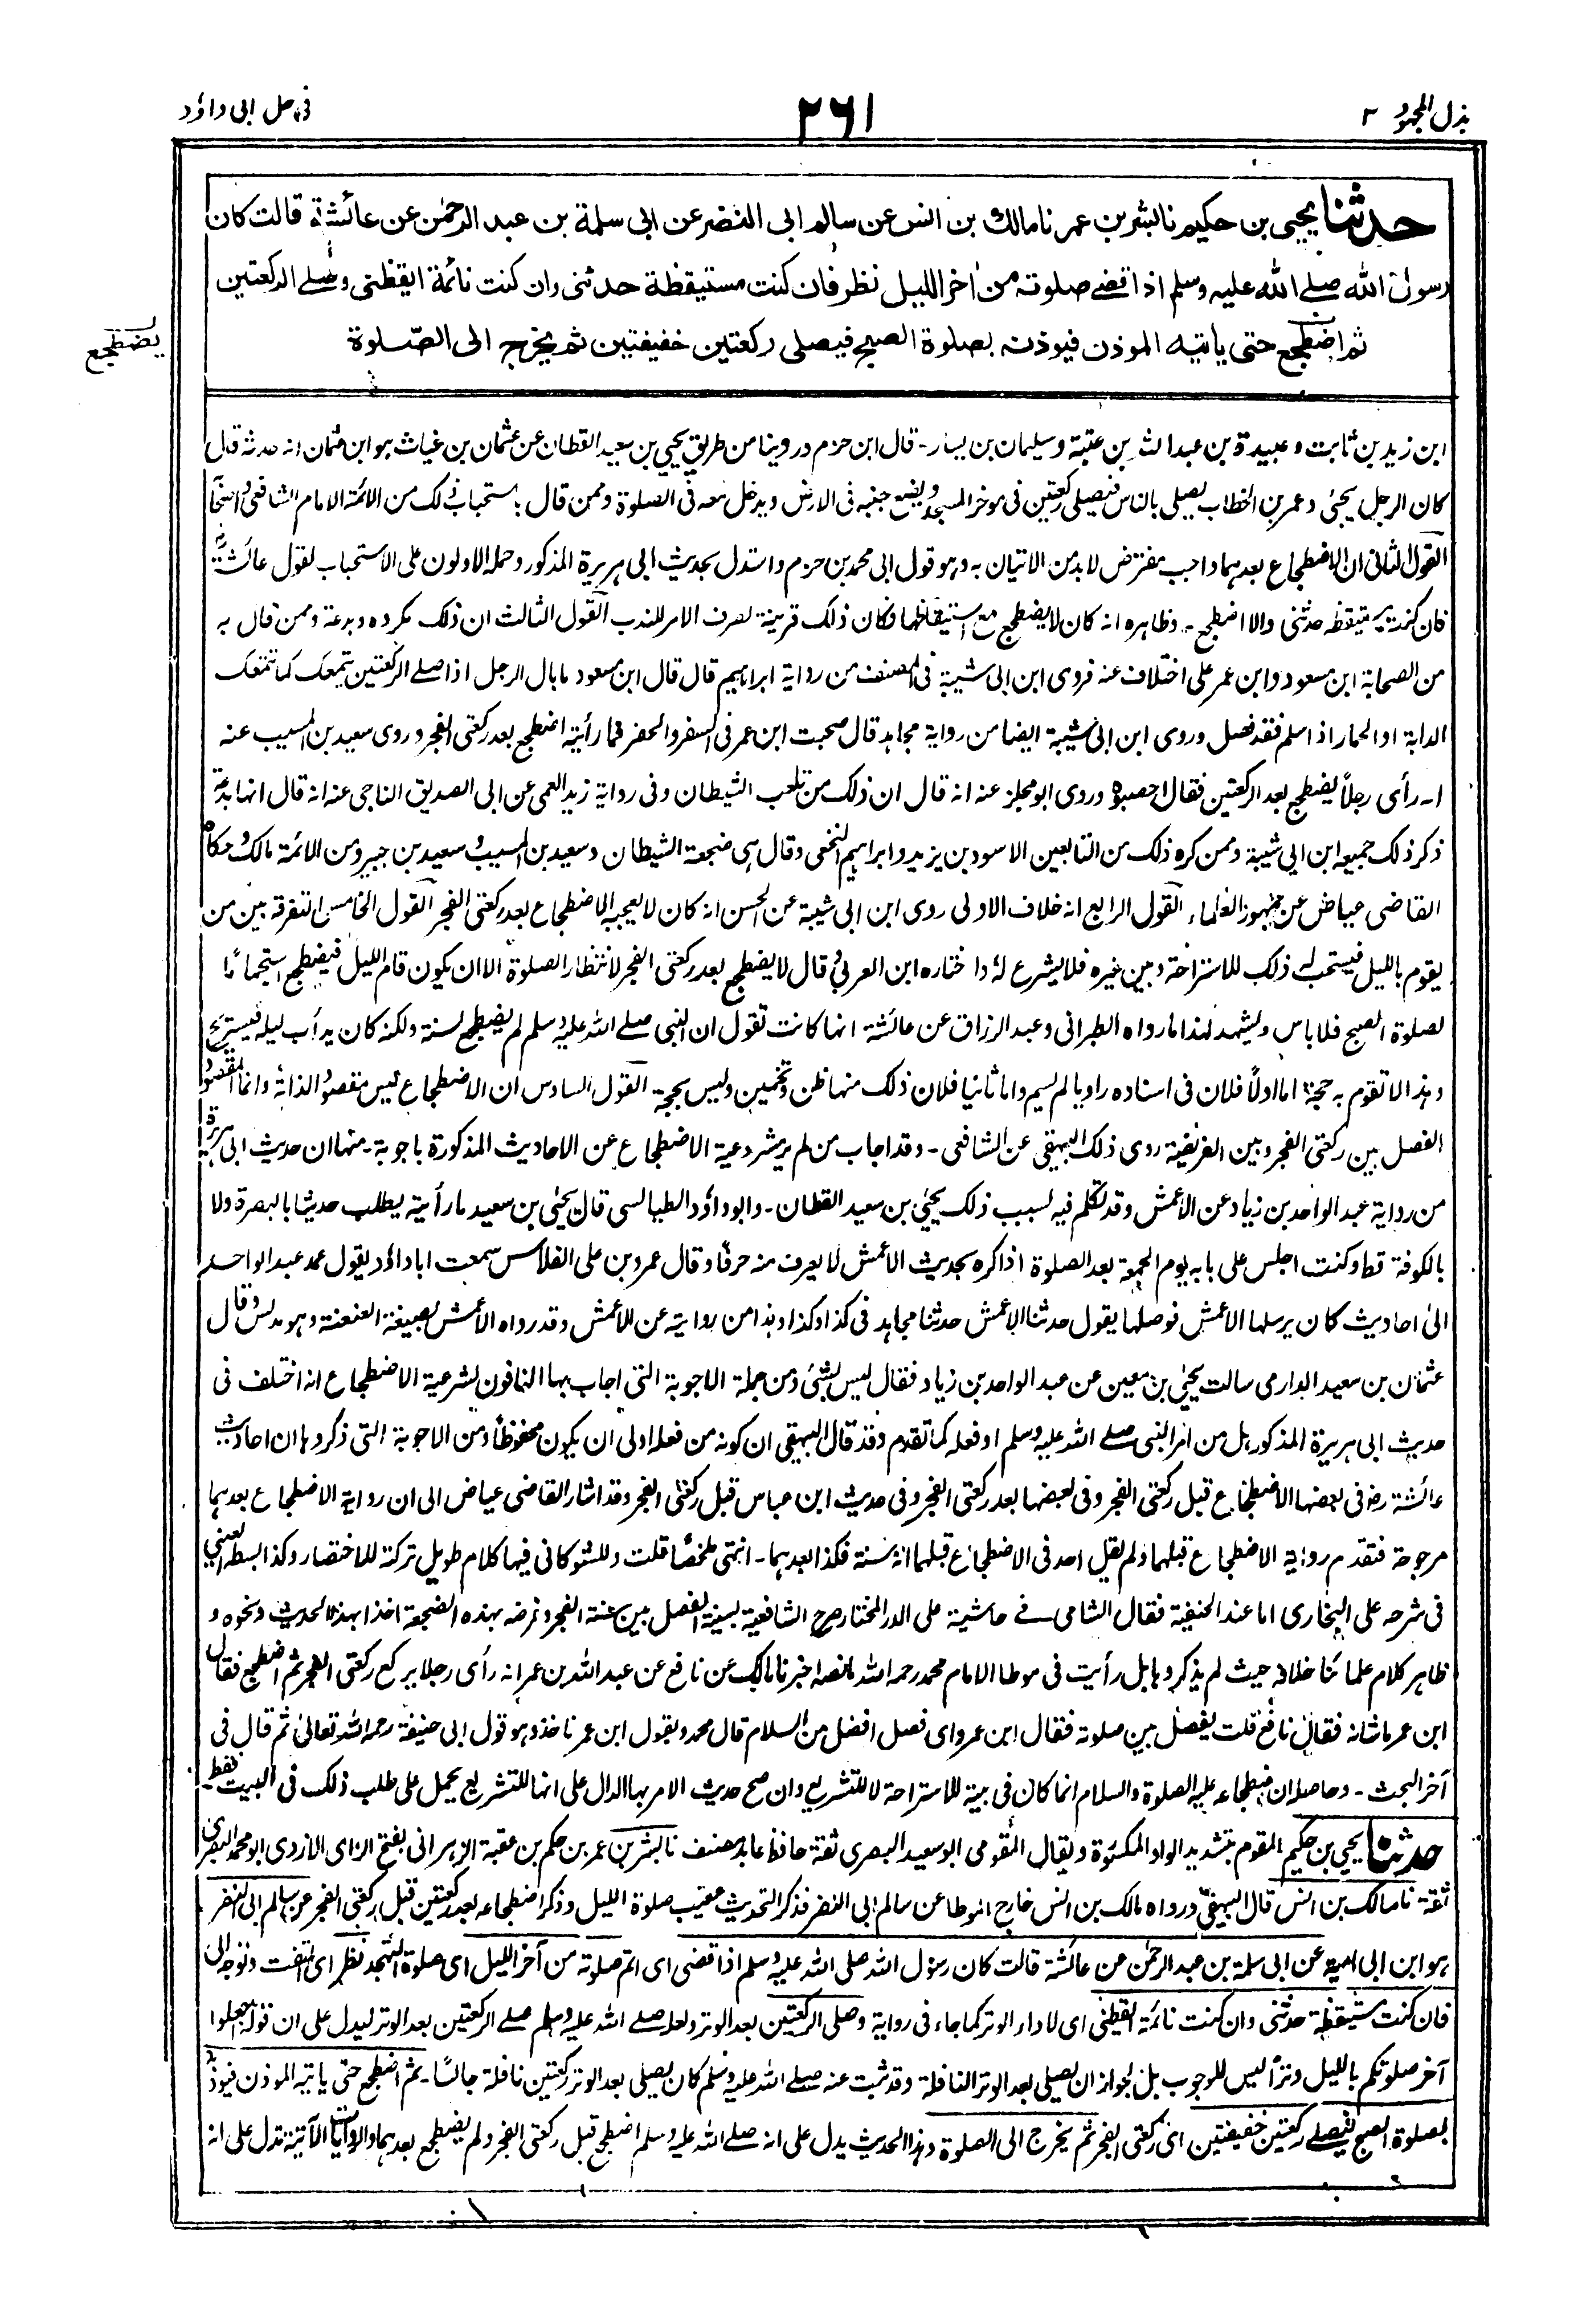 بذل المجهود ٢
٢٦١
في حل ابى داؤد
حدثنا يحيى بن حكيم نا بشر بن عمر نا مالك بن انس عن سالم ابى النضر عن ابى سلمة بن عبد الرحمن عن عائشة قالت كان
رسول الله صلے الله عليه وسلم اذا قضے صلوته من اٰخر الليل نظر فان كنت مستيقظة حدثنى وان كنت نائمة ايقظنى وصلے الركعتين
ثم اضطجع حتى ياتيه الموذن فيوذنه بصلوة الصبح فيصلى ركعتين خفيفتين ثم يخرج الى الصلوة
يضطجع
ابن زيد بن ثابت وعبيدة بن عبد الله بن عتبة وسليمان بن يسار - قال ابن حزم وروينا من طريق يحيي بن سعيد القطان عن عثمان بن غياث هو ابن عثمان انه حدثه قال
كان الرجل يجئ وعمر بن الخطاب يصلى بالناس فيصلى ركعتين فى موخر المسجد ويضع جنبه فى الارض ويدخل معه فى الصلوة وممن قال باستحباب ذلك من الائمة الامام الشافعى واصحابه
القول الثانى ان الاضطجاع بعدهما واجب مفترض لا بد من الاتيان به وهو قول ابى محمد بن حزم واستدل بحديث ابى هريرة المذكور وحمله الاولون على الاستحباب لقول عائشة رض
فان كنت مستيقظة حدثنى والا اضطجع - وظاهره انه كان لا يضطجع مع استيقاظها فكان ذلك قرينة لصرف الامر للندب القول الثالث ان ذلك مكروه وبدعة وممن قال به
من الصحابة ابن مسعود وابن عمر على اختلاف عنه فروى ابن ابى شيبة فى المصنف من رواية ابراهيم قال قال ابن مسعود ما بال الرجل اذا صلے الركعتين يتمعك كما تتمعك
الدابة او الحمار اذا سلم فقد فصل وروى ابن ابى شيبة ايضا من رواية مجاهد قال صحبت ابن عمر فى السفر والحضر فما رأيته اضطجع بعد ركعتى الفجر وروى سعيد بن المسيب عنه
انه رأى رجلاً يضطجع بعد الركعتين فقال احصبوه وروى ابو مجلز عنه انه قال ان ذلك من تلعب الشيطان وفى رواية زيد العمى عن ابى الصديق الناجى عنه انه قال انها بدعة
ذكر ذلك جميعه ابن ابى شيبة وممن كره ذلك من التابعين الاسود بن يزيد وابراهيم النخعى وقال هى ضجعة الشيطان وسعيد بن المسيب وسعيد بن جبير ومن الائمة مالك وحكاه
القاضى عياض عن جمهور العلماء القول الرابع انه خلاف الاولى روى ابن ابى شيبة عن الحسن انه كان لا يعجبه الاضطجاع بعد ركعتى الفجر القول الخامس التفرقة بين من
يقوم بالليل فيستحب له ذلك للاستراحة وبين غيره فلا يشرع له واختاره ابن العربى وقال لا يضطجع بعد ركعتى الفجر لانتظار الصلوة الا ان يكون قام الليل فيضطجع استجماما
لصلوة الصبح فلا باس ويشهد لهذا ما رواه الطبرانى وعبد الرزاق عن عائشة انها كانت تقول ان النبى صلے الله عليه وسلم لم يضطجع لسنة ولكنه كان يدأب ليله فيستريح
وهذا لا تقوم به حجة اما اولاً فلان فى اسناده راويا لم يسم واما ثانيا فلان ذلك منها ظن وتخمين وليس بحجة القول السادس ان الاضطجاع ليس مقصودا لذاته وانما المقصود
الفصل بين ركعتى الفجر وبين الفريضة روى ذلك البيهقى عن الشافعى - وقد اجاب من لم ير مشروعية الاضطجاع عن الاحاديث المذكورة باجوبة - منها ان حديث ابى هريرة
من رواية عبد الواحد بن زياد عن الاعمش وقد تكلم فيه بسبب ذلك يحيى بن سعيد القطان - وابو داؤد الطيالسى قال يحيى بن سعيد ما رأيته يطلب حديثا بالبصرة ولا
بالكوفة قط وكنت اجلس على بابه يوم الجمعة بعد الصلوة اذاكره بحديث الاعمش لا يعرف منه حرفا وقال عمرو بن على الفلاس سمعت ابا داؤد يقول عمد عبد الواحد
الى احاديث كان يرسلها الاعمش فوصلها يقول حدثنا الاعمش حدثنا مجاهد فى كذا وكذا وهذا من روايته عن الاعمش وقد رواه الاعمش بصيغة العنعنة وهو مدلس وقال
عثمان بن سعيد الدارمى سالت يحيٰى بن معين عن عبد الواحد بن زياد فقال ليس بشئ ومن جملة الاجوبة التى اجاب بها النافون لشرعية الاضطجاع انه اختلف فى
حديث ابى هريرة المذكور بل من امر النبى صلے الله عليه وسلم او فعله كما تقدم وقد قال البيهقى ان كونه من فعله اولى ان يكون محفوظا ومن الاجوبة التى ذكروها ان احاديث
عائشة رض فى بعضها الاضطجاع قبل ركعتى الفجر وفى بعضها بعد ركعتى الفجر وفى حديث ابن عباس قبل ركعتى الفجر وقد اشار القاضى عياض الى ان رواية الاضطجاع بعدهما
مرجوحة فتقدم رواية الاضطجاع قبلهما ولم يقل احد فى الاضطجاع قبلهما انه سنة فكذا بعدهما - انتهى ملخصًا قلت وللشوكانى فيها كلام طويل تركته للاختصار وكذا بسطه العينى
فى شرحه على البخارى اما عند الحنفية فقال الشامى فے حاشيته على الدر المختار صرح الشافعية بسنية الفصل بين سنة الفجر وفرضه بهذه الضجعة اخذا بهذا الحديث ونحوه و
ظاهر كلام علمائنا خلافه حيث لم يذكروها بل رأيت فى موطا الامام محمد رحمه الله ما نصه اخبرنا مالك عن نافع عن عبد الله بن عمر انه رأى رجلا يركع ركعتى الفجر ثم اضطجع فقال
ابن عمر ما شانه فقال نافع قلت يفصل بين صلوته فقال ابن عمر واى فصل افضل من السلام قال محمد وبقول ابن عمر ناخذ وهو قول ابى حنيفة رحمه الله تعالىٰ ثم قال فى
آخر البحث - وحاصله ان اضطجاعه عليه الصلوة والسلام انما كان فى بيته للاستراحة لا للتشريع وان صح حديث الامر بها الدال على انها للتشريع يحمل على طلب ذلك فى البيت فقط -
حدثنا يحيى بن حكيم المقوم بتشديد الواو المكسورة ويقال المقومى ابو سعيد البصرى ثقة حافظ عابد مصنف نا بشر بن عمر بن حكم بن عقبة الزهرانى بفتح الزاى الازدى ابو محمد البصرى
ثقة نا مالك بن انس قال البيهقى ورواه مالك بن انس خارج الموطا عن سالم ابى النضر فذكر التحديث عقيب صلوة الليل وذكر اضطجاعه بعد ركعتين قبل ركعتى الفجر عن سالم ابى النضر
هو ابن ابى امية عن ابى سلمة بن عبد الرحمٰن عن عائشة قالت كان رسول الله صلى الله عليه وسلم اذا قضى اى اتم صلوته من آخر الليل اى صلوة التهجد نظر اى التفت وتوجه الى
فان كنت مستيقظة حدثنى وان كنت نائمة ايقظنى اى لاداء الوتر كما جاء فى رواية وصلى الركعتين بعد الوتر ولعله صلے الله عليه وسلم صلے الركعتين بعد الوتر ليدل على ان قوله اجعلوا
آخر صلوتكم بالليل وترا ليس للوجوب بل لجواز ان يصلى بعد الوتر النافلة وقد ثبت عنه صلے الله عليه وسلم كان يصلى بعد الوتر ركعتين نافلة جالسًا - ثم اضطجع حتى ياتيه الموذن فيوذنه
بصلوة الصبح فيصلے ركعتين خفيفتين اى ركعتى الفجر ثم يخرج الى الصلوة وهذا الحديث يدل على انه صلے الله عليه وسلم اضطجع قبل ركعتى الفجر ولم يضطجع بعدهما والروايات الآتية تدل على انه